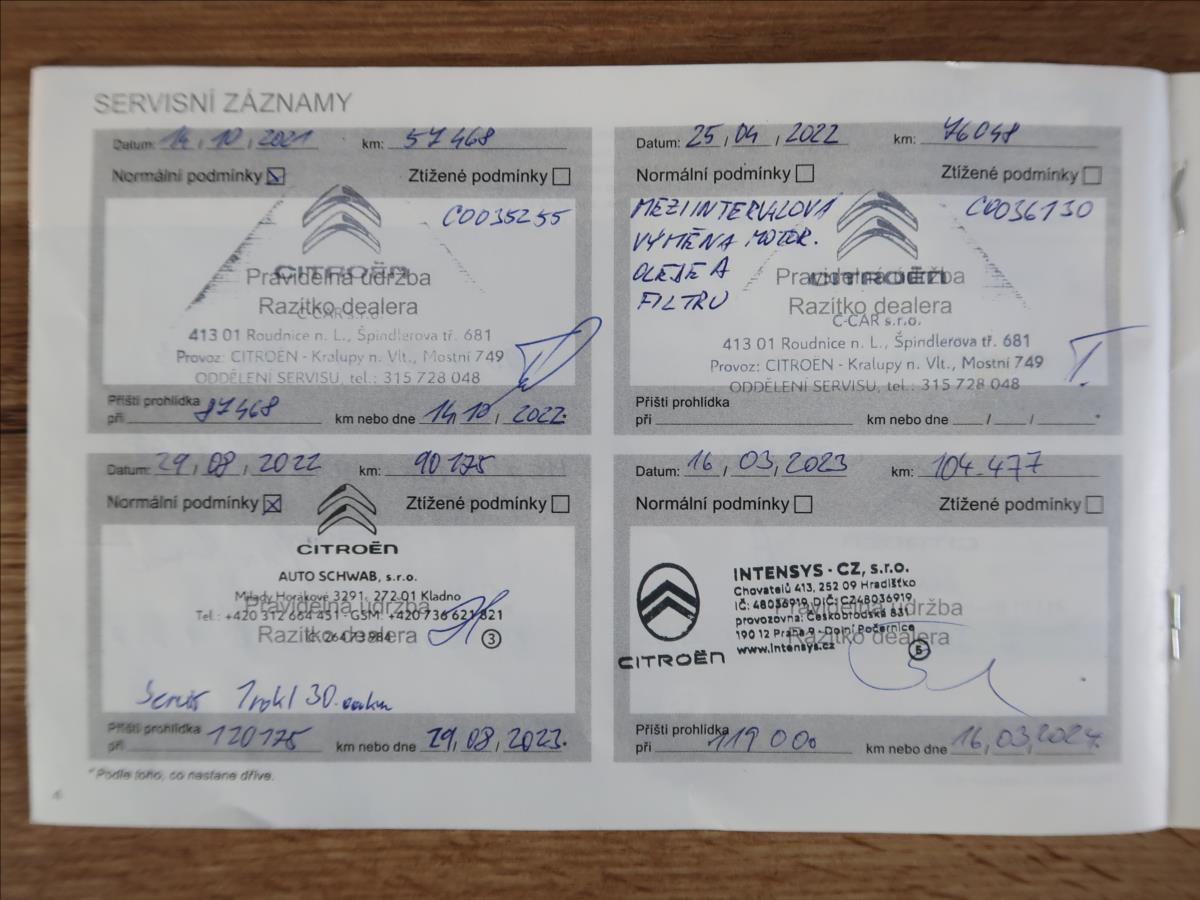 SERVISNÍ ZÁZNAMY
Datum: 14 / 10 / 2021 km: 57468
Normální podmínky Ztížené podmínky
C0035255
CITROËN
Pravidelná údržba
Razítko dealera
C-CAR s.r.o.
413 01 Roudnice n. L., Špindlerova tř. 681
Provoz: CITROËN - Kralupy n. Vlt., Mostní 749
ODDĚLENÍ SERVISU, tel.: 315 728 048
Příští prohlídka
při 87468 km nebo dne 14, 10 / 2022.
Datum: 25 / 04 / 2022 km: 76048
Normální podmínky Ztížené podmínky
MEZIINTERVALOVÁ C0036130
VÝMĚNA MOTOR.
OLEJE A
FILTRU
CITROËN
Pravidelná údržba
Razítko dealera
C-CAR s.r.o.
413 01 Roudnice n. L., Špindlerova tř. 681
Provoz: CITROËN - Kralupy n. Vlt., Mostní 749
ODDĚLENÍ SERVISU, tel.: 315 728 048
Příští prohlídka
při km nebo dne / /
Datum: 29 / 08 / 2022 km: 90175
Normální podmínky Ztížené podmínky
CITROËN
AUTO SCHWAB, s.r.o.
Milady Horákové 3291, 272 01 Kladno
Pravidelná údržba
Tel.: +420 312 664 451 · GSM: +420 736 621 821
Razítko dealera
3
Servis 1 rok / 30.
Příští prohlídka
při 120175 km nebo dne 29, 08, 2023.
Datum: 16 / 03, 2023 km: 104.477
Normální podmínky Ztížené podmínky
CITROËN
INTENSYS - CZ, s.r.o.
Chovatelů 413, 252 09 Hradišťko
IČ: 48036919, DIČ: CZ48036919
Pravidelná údržba
provozovna: Českobrodská 831
190 12 Praha 9 - Dolní Počernice
Razítko dealera
www.intensys.cz
5
Příští prohlídka
při 119 000 km nebo dne 16, 03, 2024.
* Podle toho, co nastane dříve.
4